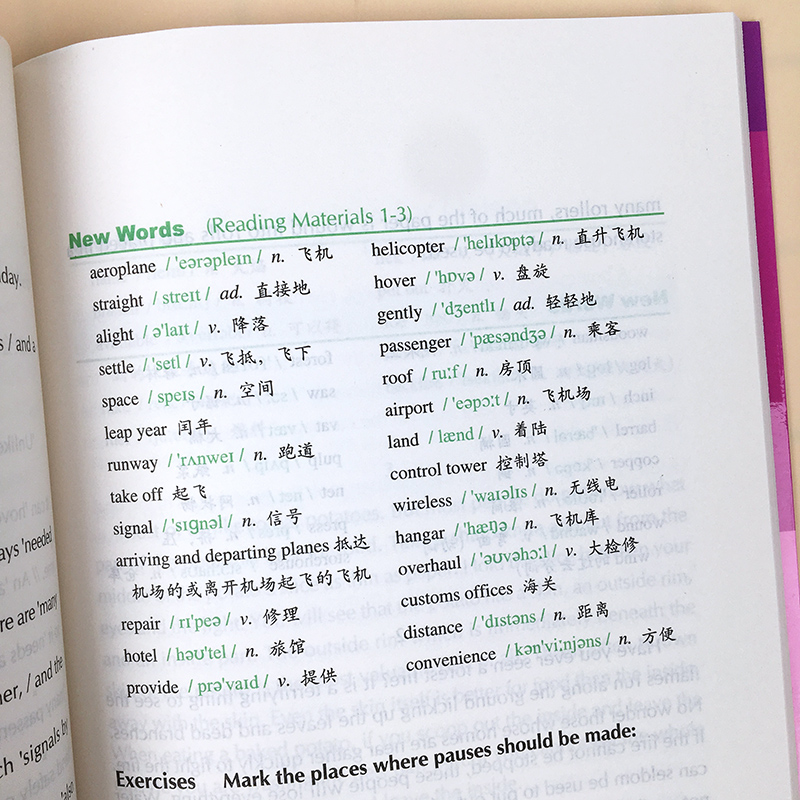 New Words (Reading Materials 1-3)
aeroplane /ˈeərəpleɪn/ n. 飞机
straight /streɪt/ ad. 直接地
alight /əˈlaɪt/ v. 降落
settle /ˈsetl/ v. 飞抵，飞下
space /speɪs/ n. 空间
leap year 闰年
runway /ˈrʌnweɪ/ n. 跑道
take off 起飞
signal /ˈsɪgnəl/ n. 信号
arriving and departing planes 抵达
机场的或离开机场起飞的飞机
repair /rɪˈpeə/ v. 修理
hotel /həʊˈtel/ n. 旅馆
provide /prəˈvaɪd/ v. 提供
helicopter /ˈhelɪkɒptə/ n. 直升飞机
hover /ˈhɒvə/ v. 盘旋
gently /ˈdʒentlɪ/ ad. 轻轻地
passenger /ˈpæsəndʒə/ n. 乘客
roof /ruːf/ n. 房顶
airport /ˈeəpɔːt/ n. 飞机场
land /lænd/ v. 着陆
control tower 控制塔
wireless /ˈwaɪəlɪs/ n. 无线电
hangar /ˈhæŋə/ n. 飞机库
overhaul /ˈəʊvəhɔːl/ v. 大检修
customs offices 海关
distance /ˈdɪstəns/ n. 距离
convenience /kənˈviːnjəns/ n. 方便
Exercises Mark the places where pauses should be made:
day.
s / and a
ays 'needed
re are 'many
her, / and the
ch 'signals by